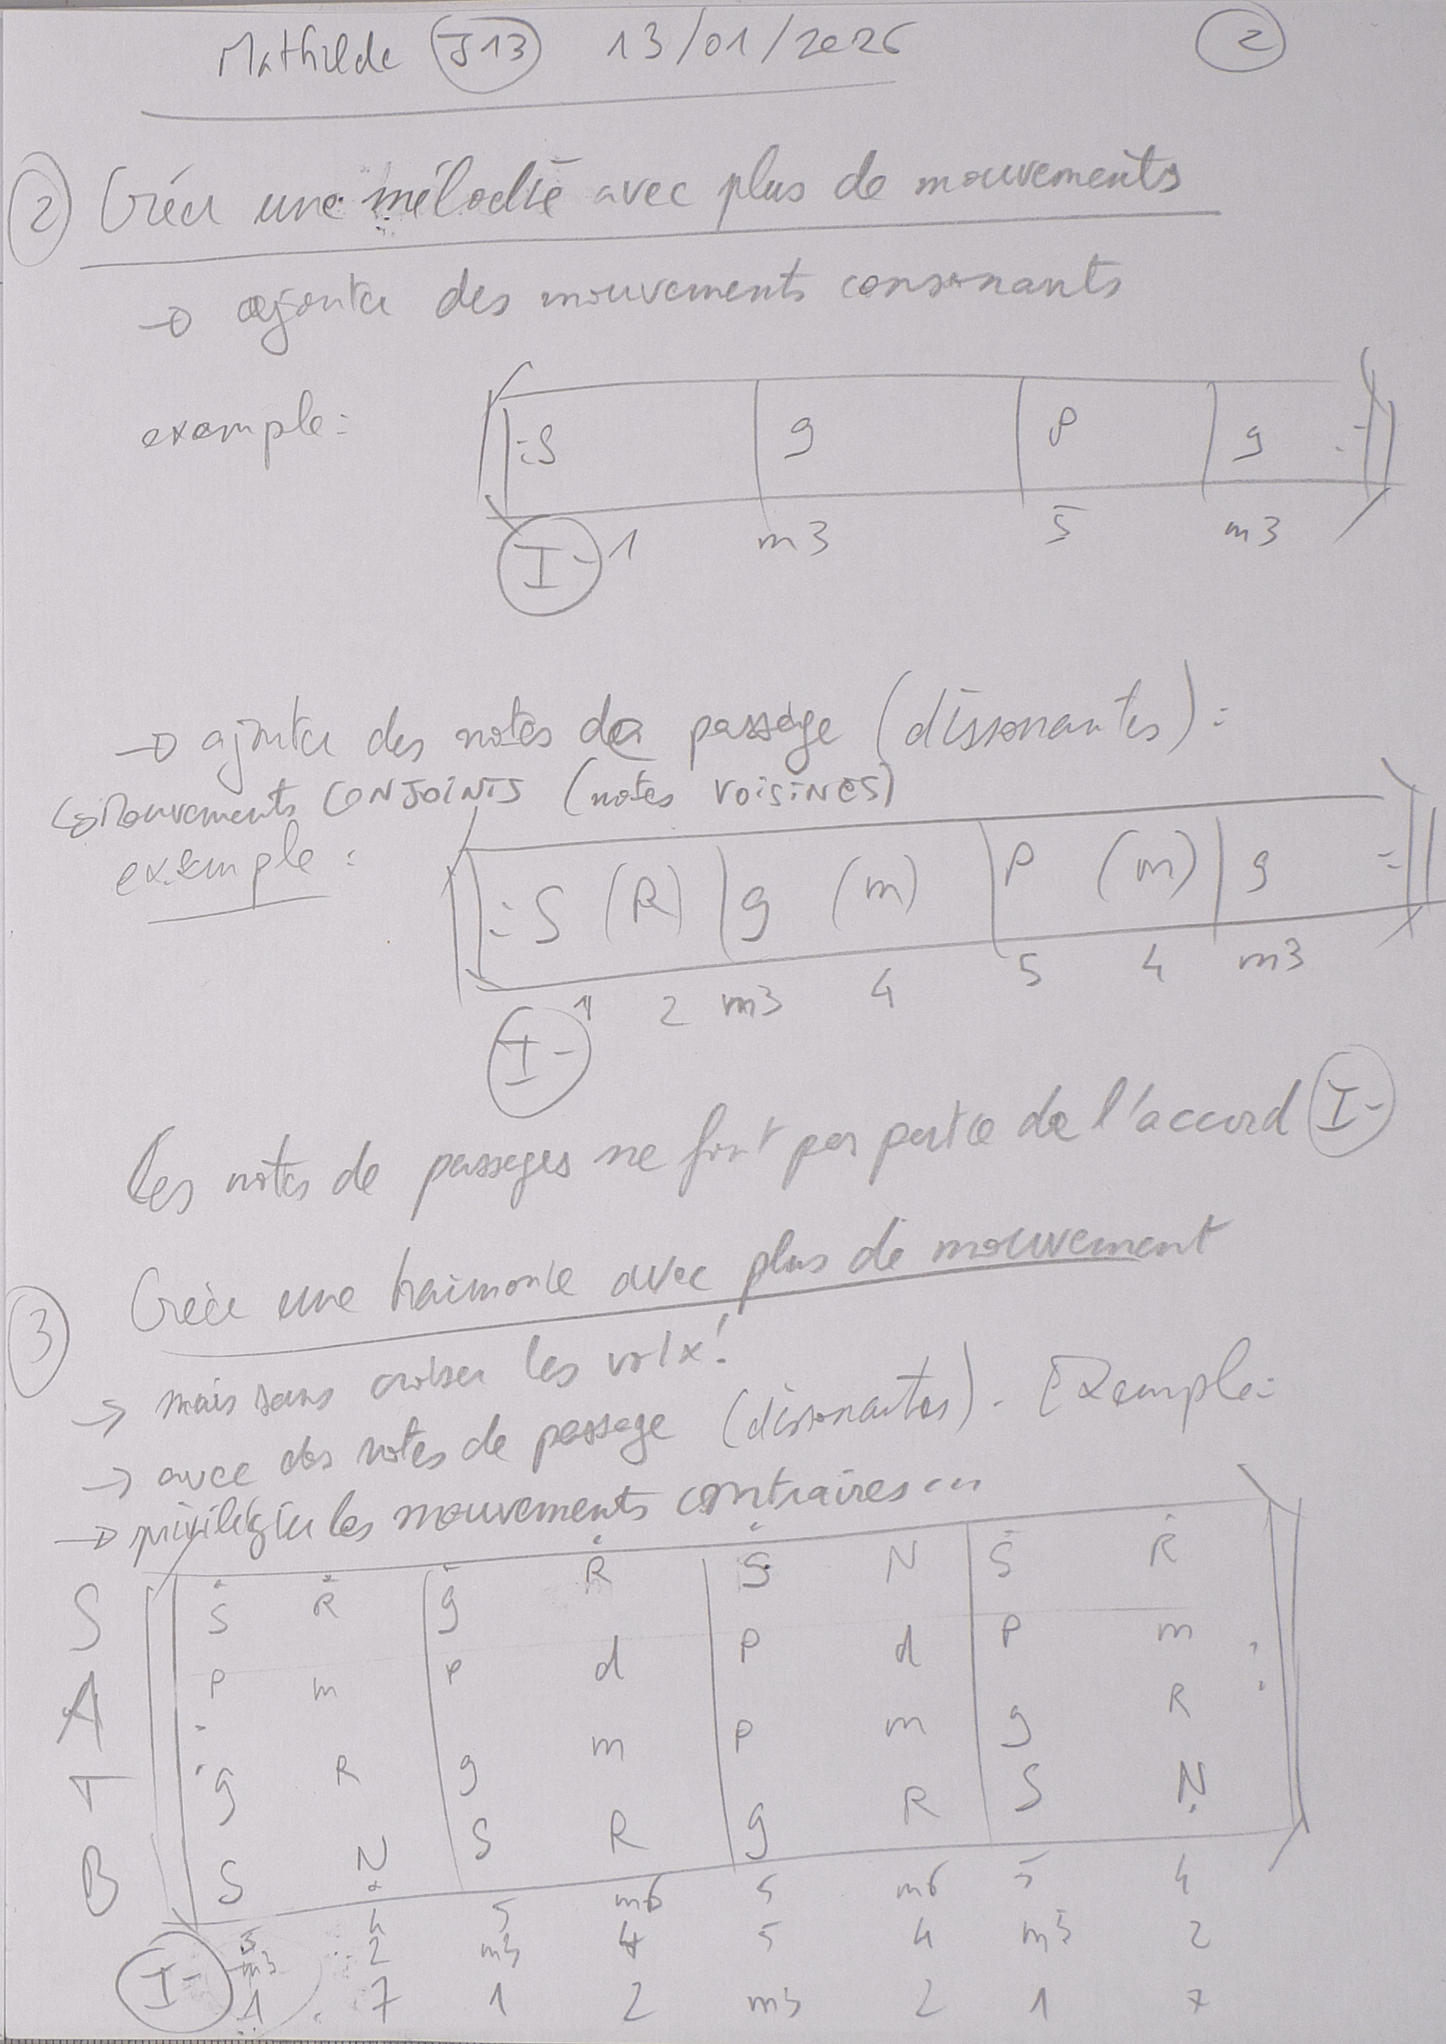 Mathilde J13 13/01/2026 2
2 Créer une mélodie avec plus de mouvements
→ ajouter des mouvements consonants
example: S g P g
I- 1 m3 5 m3
→ ajouter des notes de passage (dissonantes):
↳ Mouvements CONJOINTS (notes VOISINES)
exemple: S (R) g (m) P (m) g
I- 1 2 m3 4 5 4 m3
Les notes de passages ne font pas partie de l'accord I-
3 Créer une harmonie avec plus de mouvement
→ mais sans croiser les voix!
→ avec des notes de passage (dissonantes). Exemple:
→ privilégier les mouvements contraires...
S Ṡ Ṙ ġ Ṙ Ṡ N Ṡ Ṙ
A P m P d P d P m
T g R g m P m g R
B S Ṇ S R g R S Ṇ
5 4 5 m6 5 m6 5 4
m3 2 m3 4 5 4 m3 2
I- 1 7 1 2 m3 2 1 7